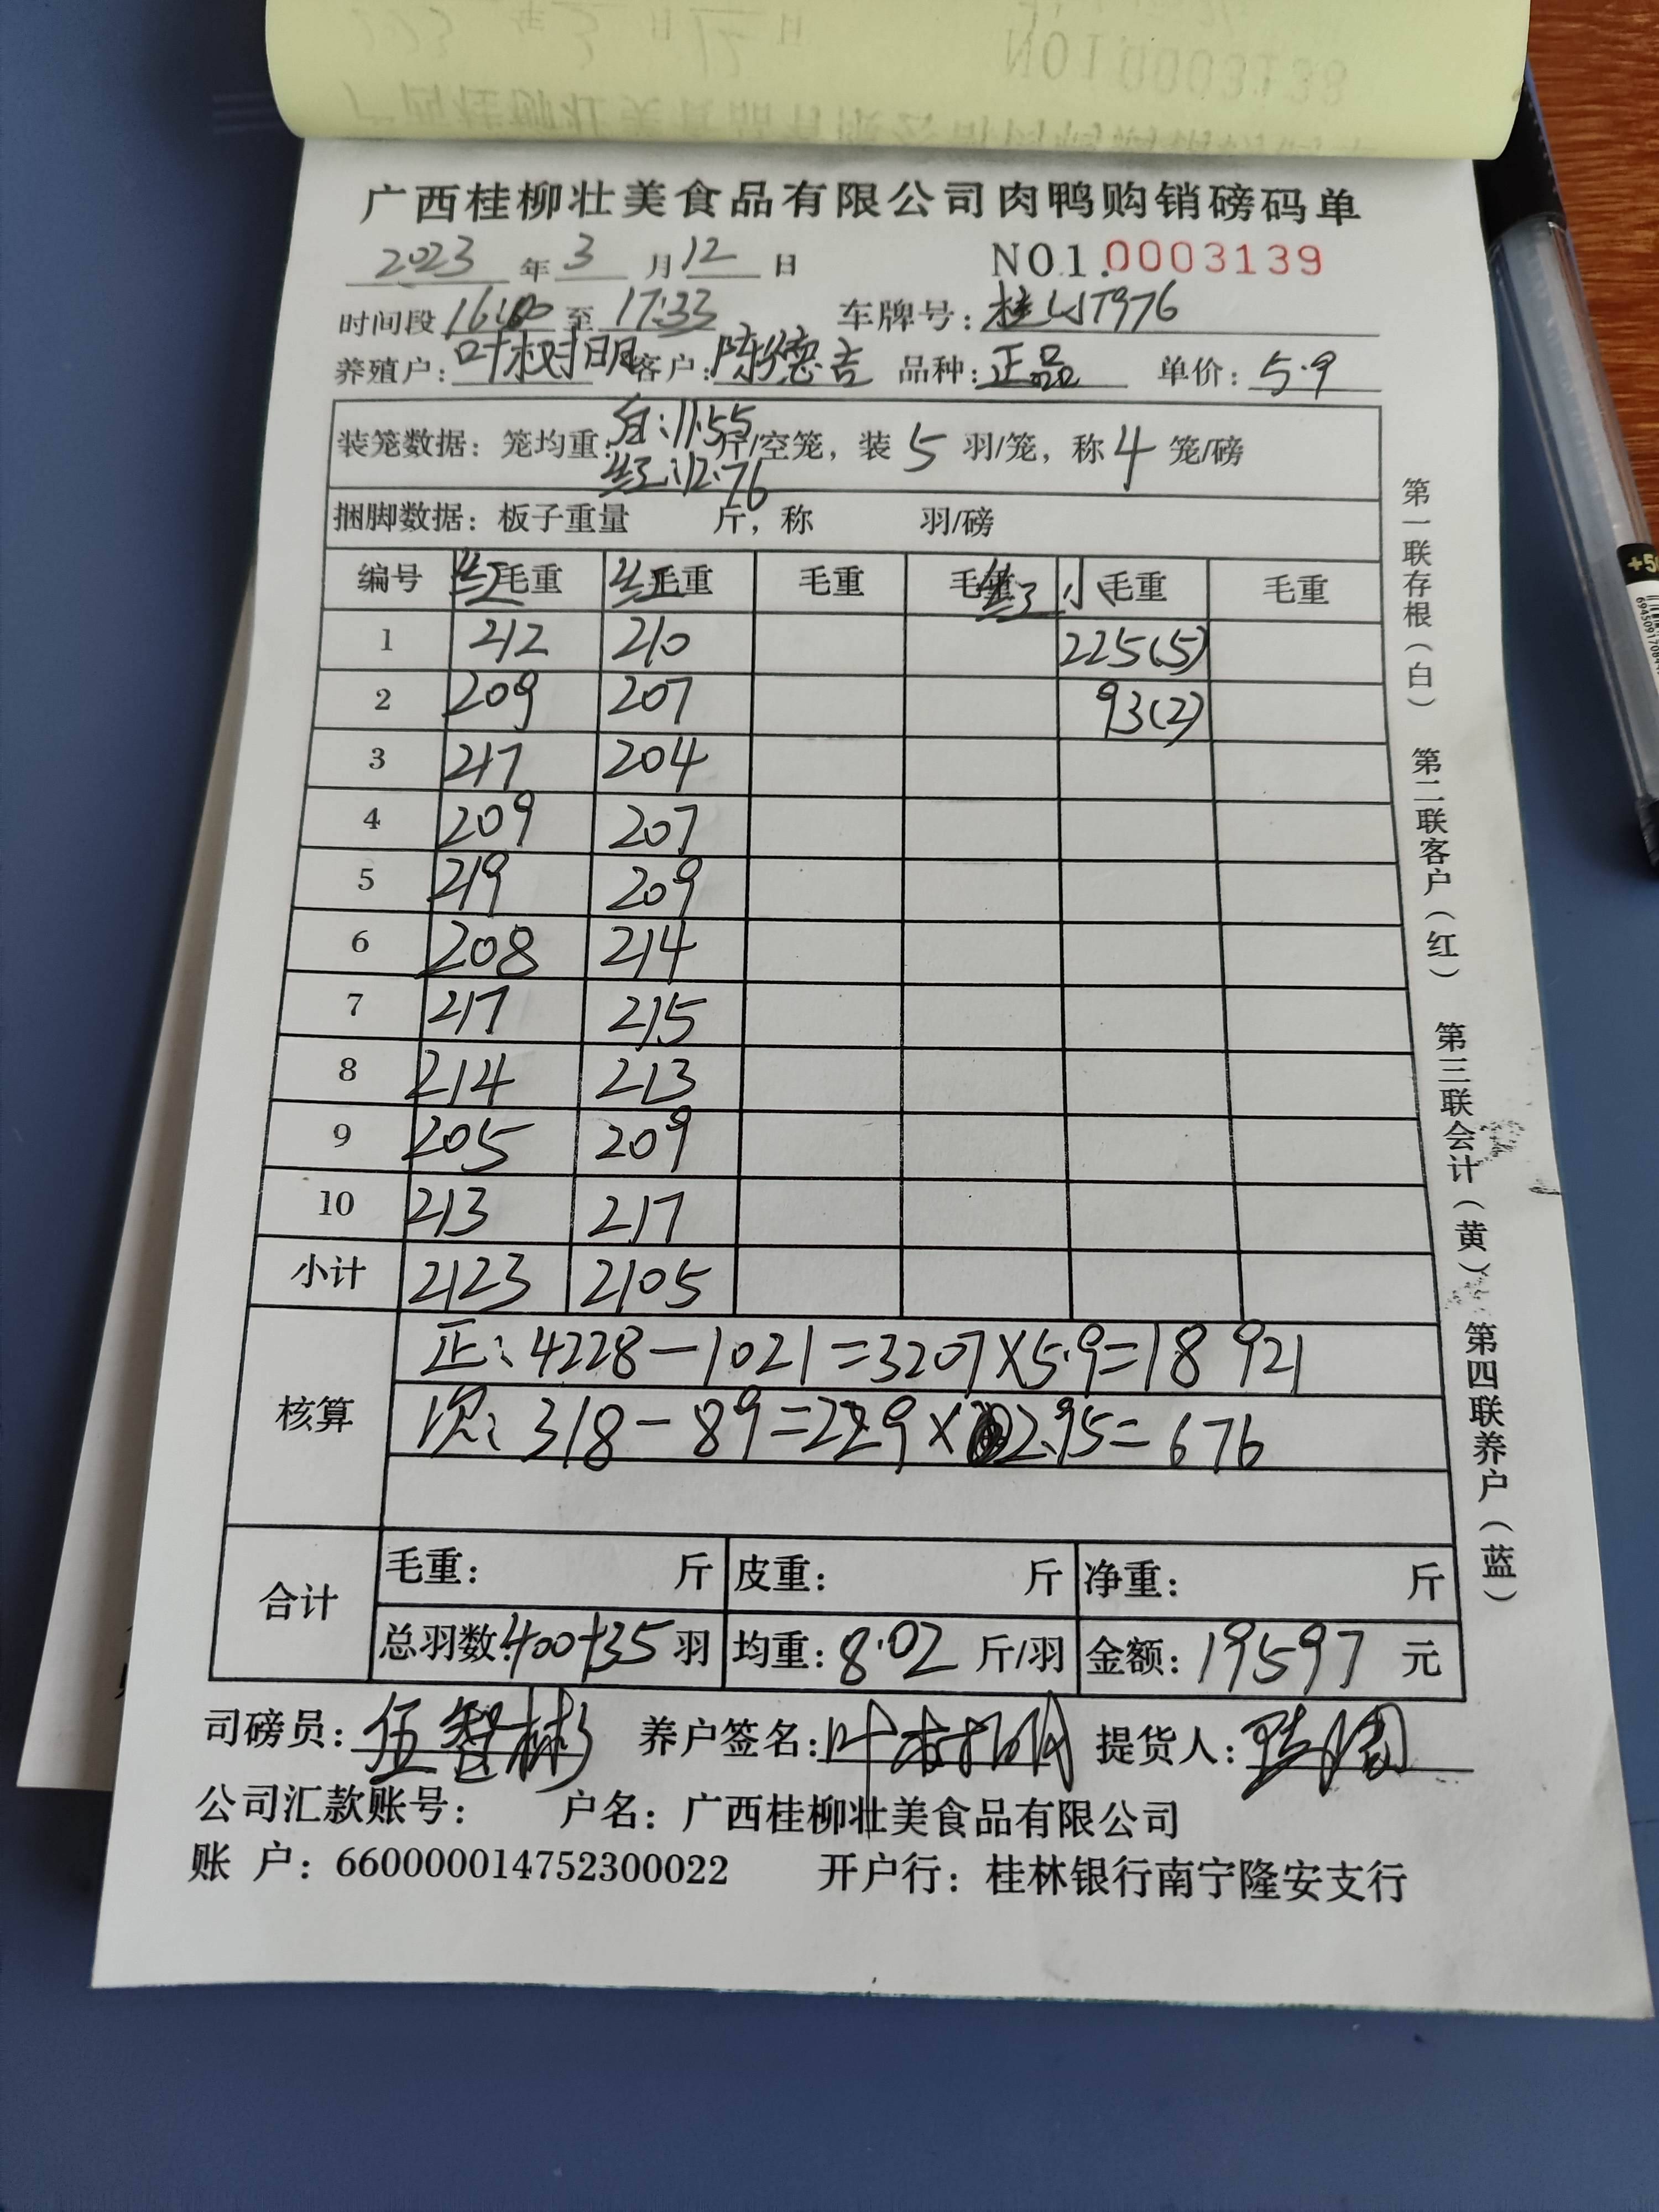 广西桂柳壮美食品有限公司肉鸭购销磅码单
2023 年 3 月 12 日 NO1.0003139
时间段 至 17:33 车牌号:
养殖户: 叶树明 客户: 陈德吉 品种: 正品 单价: 5.9
装笼数据: 笼均重: 白:11.55 斤/空笼, 装 5 羽/笼, 称 4 笼/磅
红:12.76
捆脚数据: 板子重量 斤, 称 羽/磅
编号 红 毛重 红 毛重 毛重 毛重 红 小 毛重 毛重
1 212 210 225(5)
2 209 207 93(2)
3 217 204
4 209 207
5 219 209
6 208 214
7 217 215
8 214 213
9 205 209
10 213 217
小计 2123 2105
核算 正: 4228-1021=3207×5.9=18921
次: 318-89=229×2.95=676
合计 毛重: 斤 皮重: 斤 净重: 斤
总羽数: 400+35 羽 均重: 8.02 斤/羽 金额: 19597 元
司磅员: 伍智彬 养户签名: 叶树明 提货人:
公司汇款账号: 户名: 广西桂柳壮美食品有限公司
账 户: 660000014752300022 开户行: 桂林银行南宁隆安支行
第一联存根(白) 第二联客户(红) 第三联会计(黄) 第四联养户(蓝)